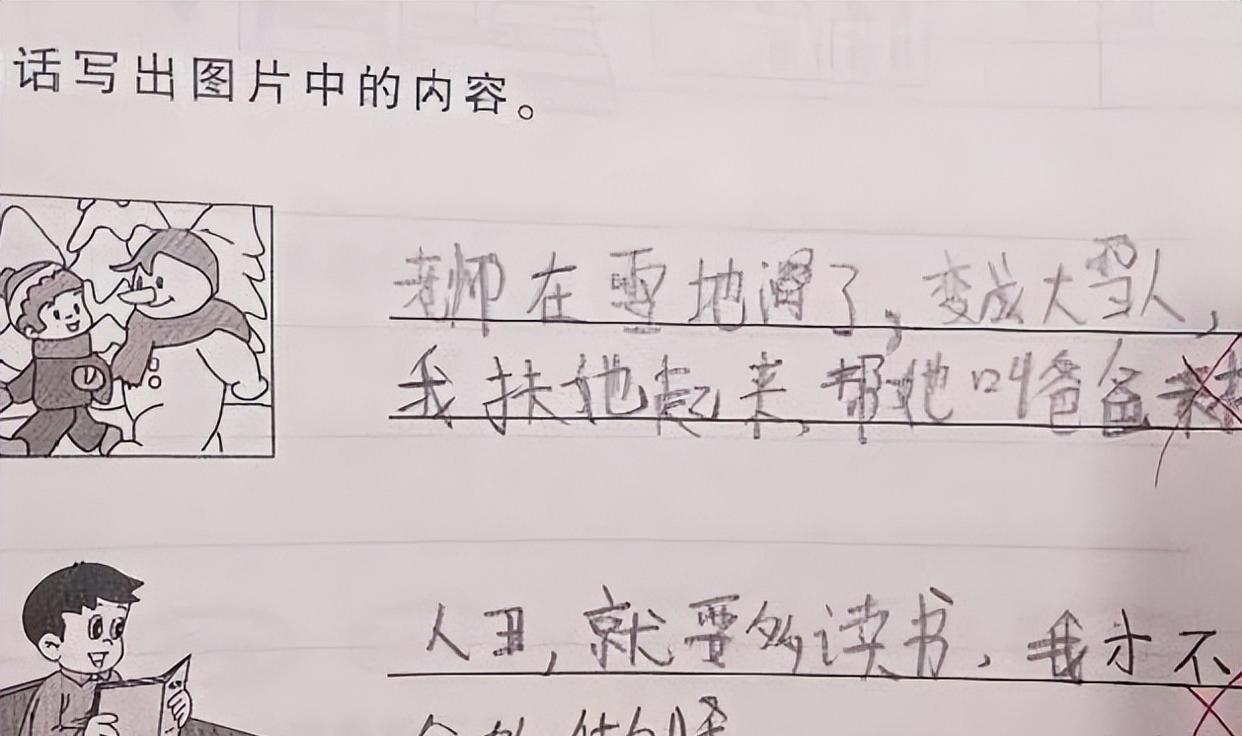 话写出图片中的内容。
老师在雪地滑了,变成大雪人,
我扶她起来,帮她叫爸爸来
人丑,就要多读书,我才不